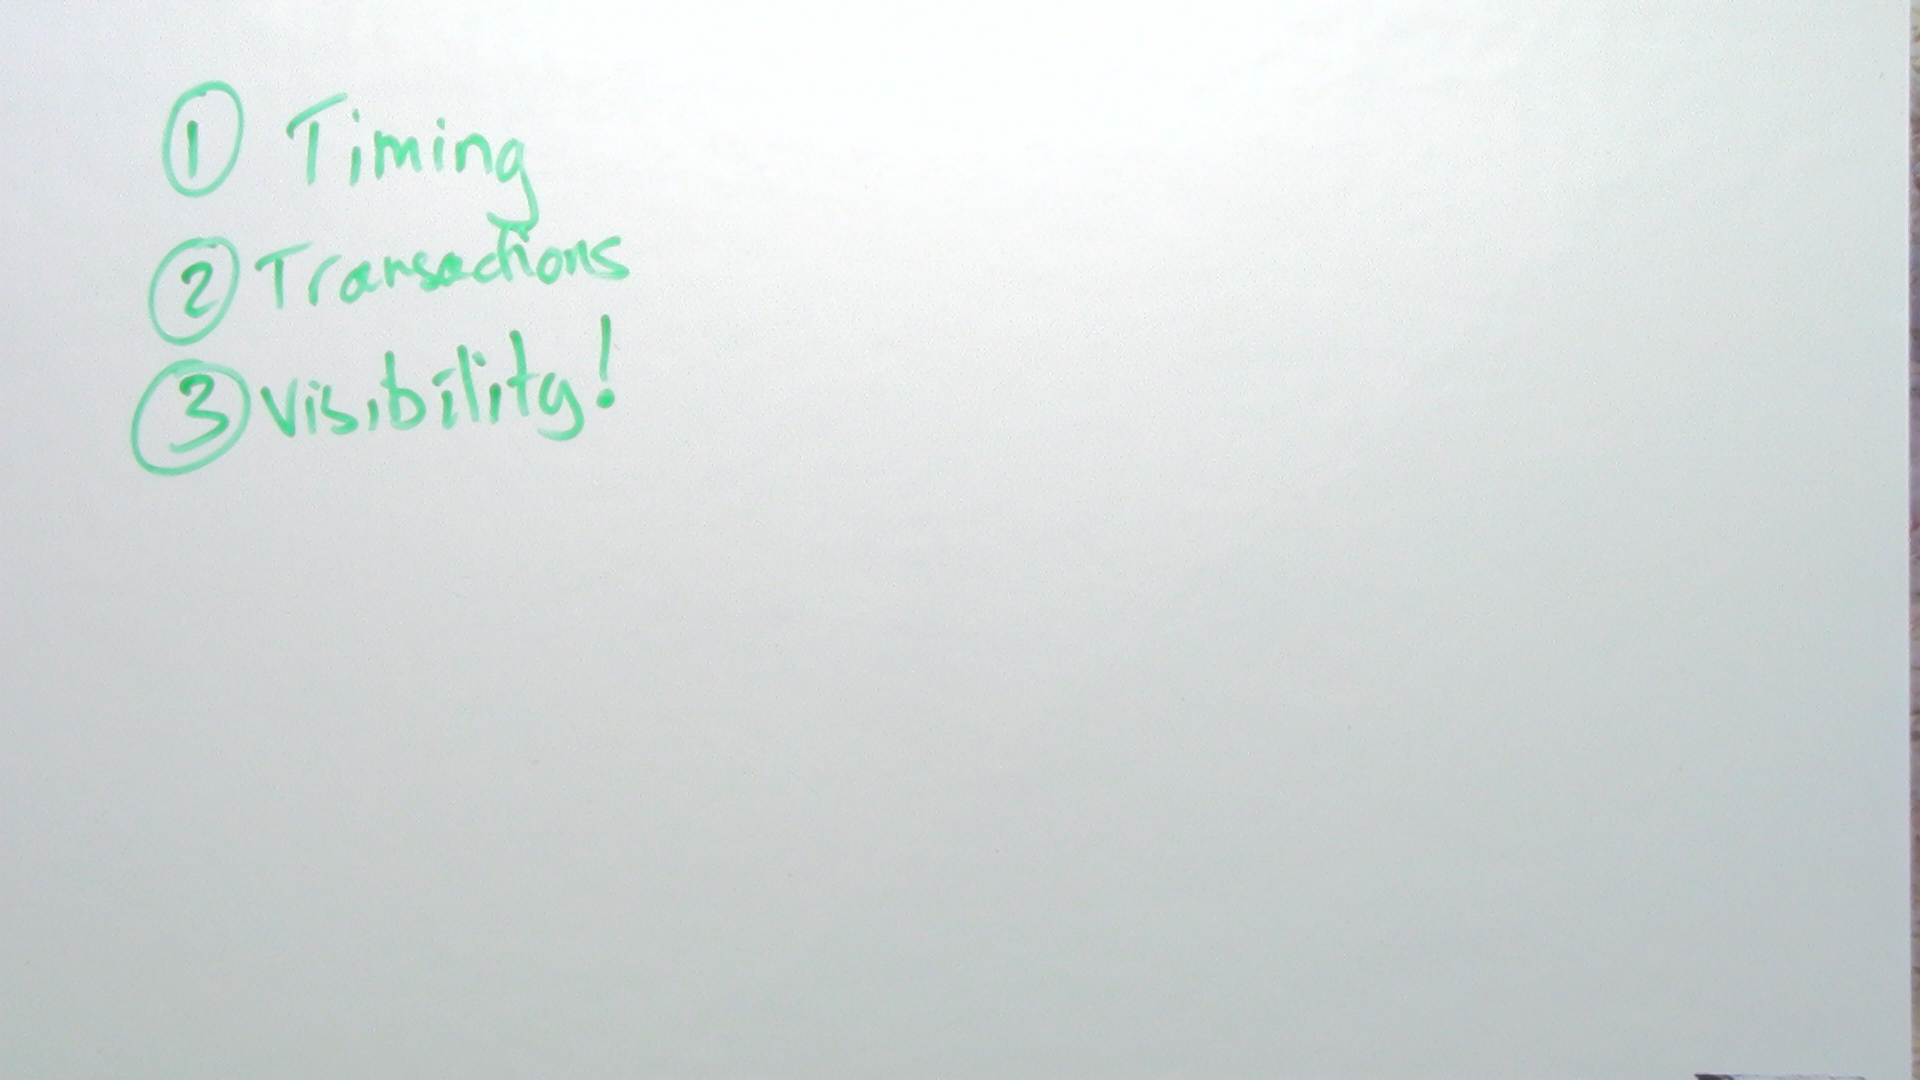 ① Timing
② Transactions
③ Visibility!